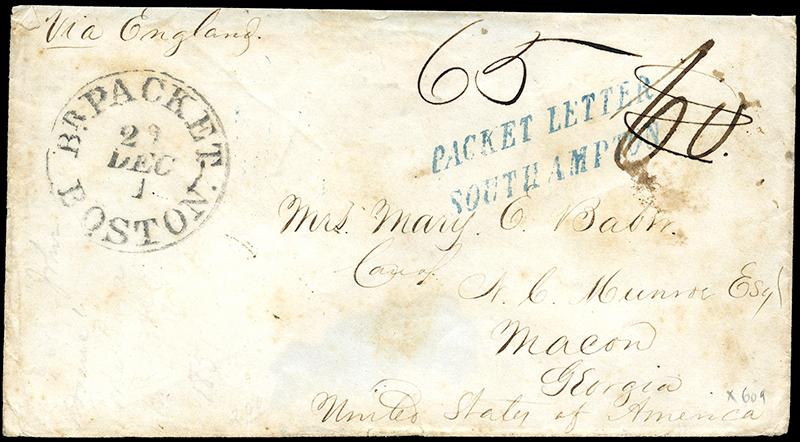 Via England.
65
60.
Br. PACKET
29
DEC
1
BOSTON.
PACKET LETTER
SOUTHAMPTON
Mrs. Mary E. Baber.
Care of
N. C. Munroe Esq
Macon
Georgia
United States of America
x609